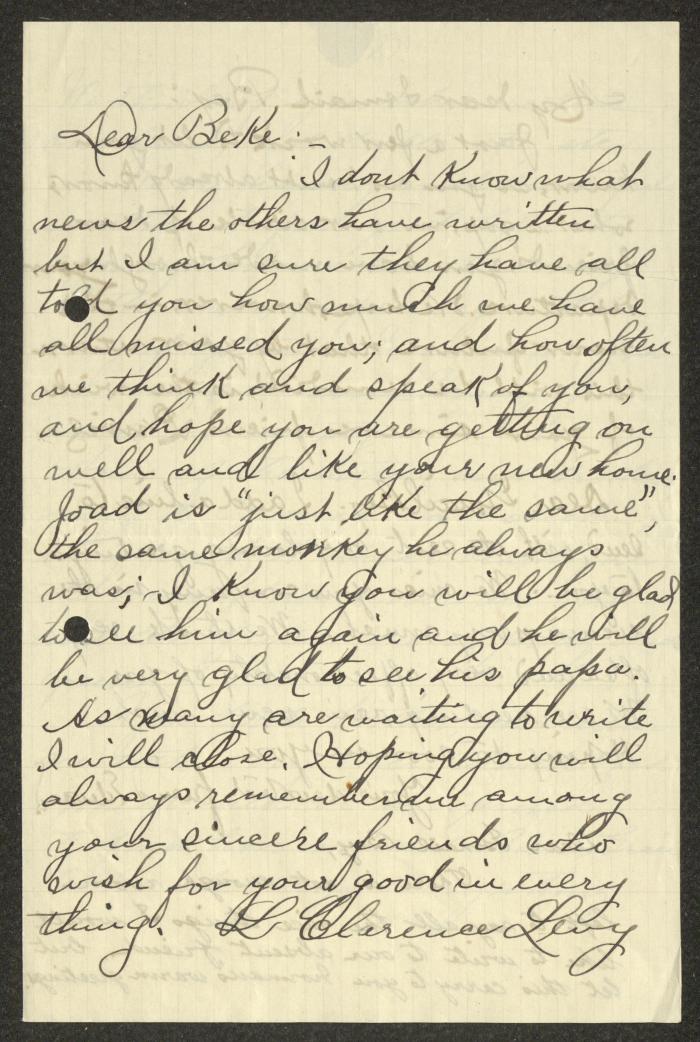 Dear Beke :-
I dont Know what
news the others have written
but I am sure they have all
told you how much we have
all missed you; and how often
we think and speak of you,
and hope you are getting on
well and like your new home.
Joad is "just like the same",
the same monkey he always
was; I Know you will be glad
to see him again and he will
be very glad to see his papa.
As many are waiting to write
I will close. Hoping you will
always remember me among
your sincere friends who
wish for your good in every
thing. L Clarence Levy